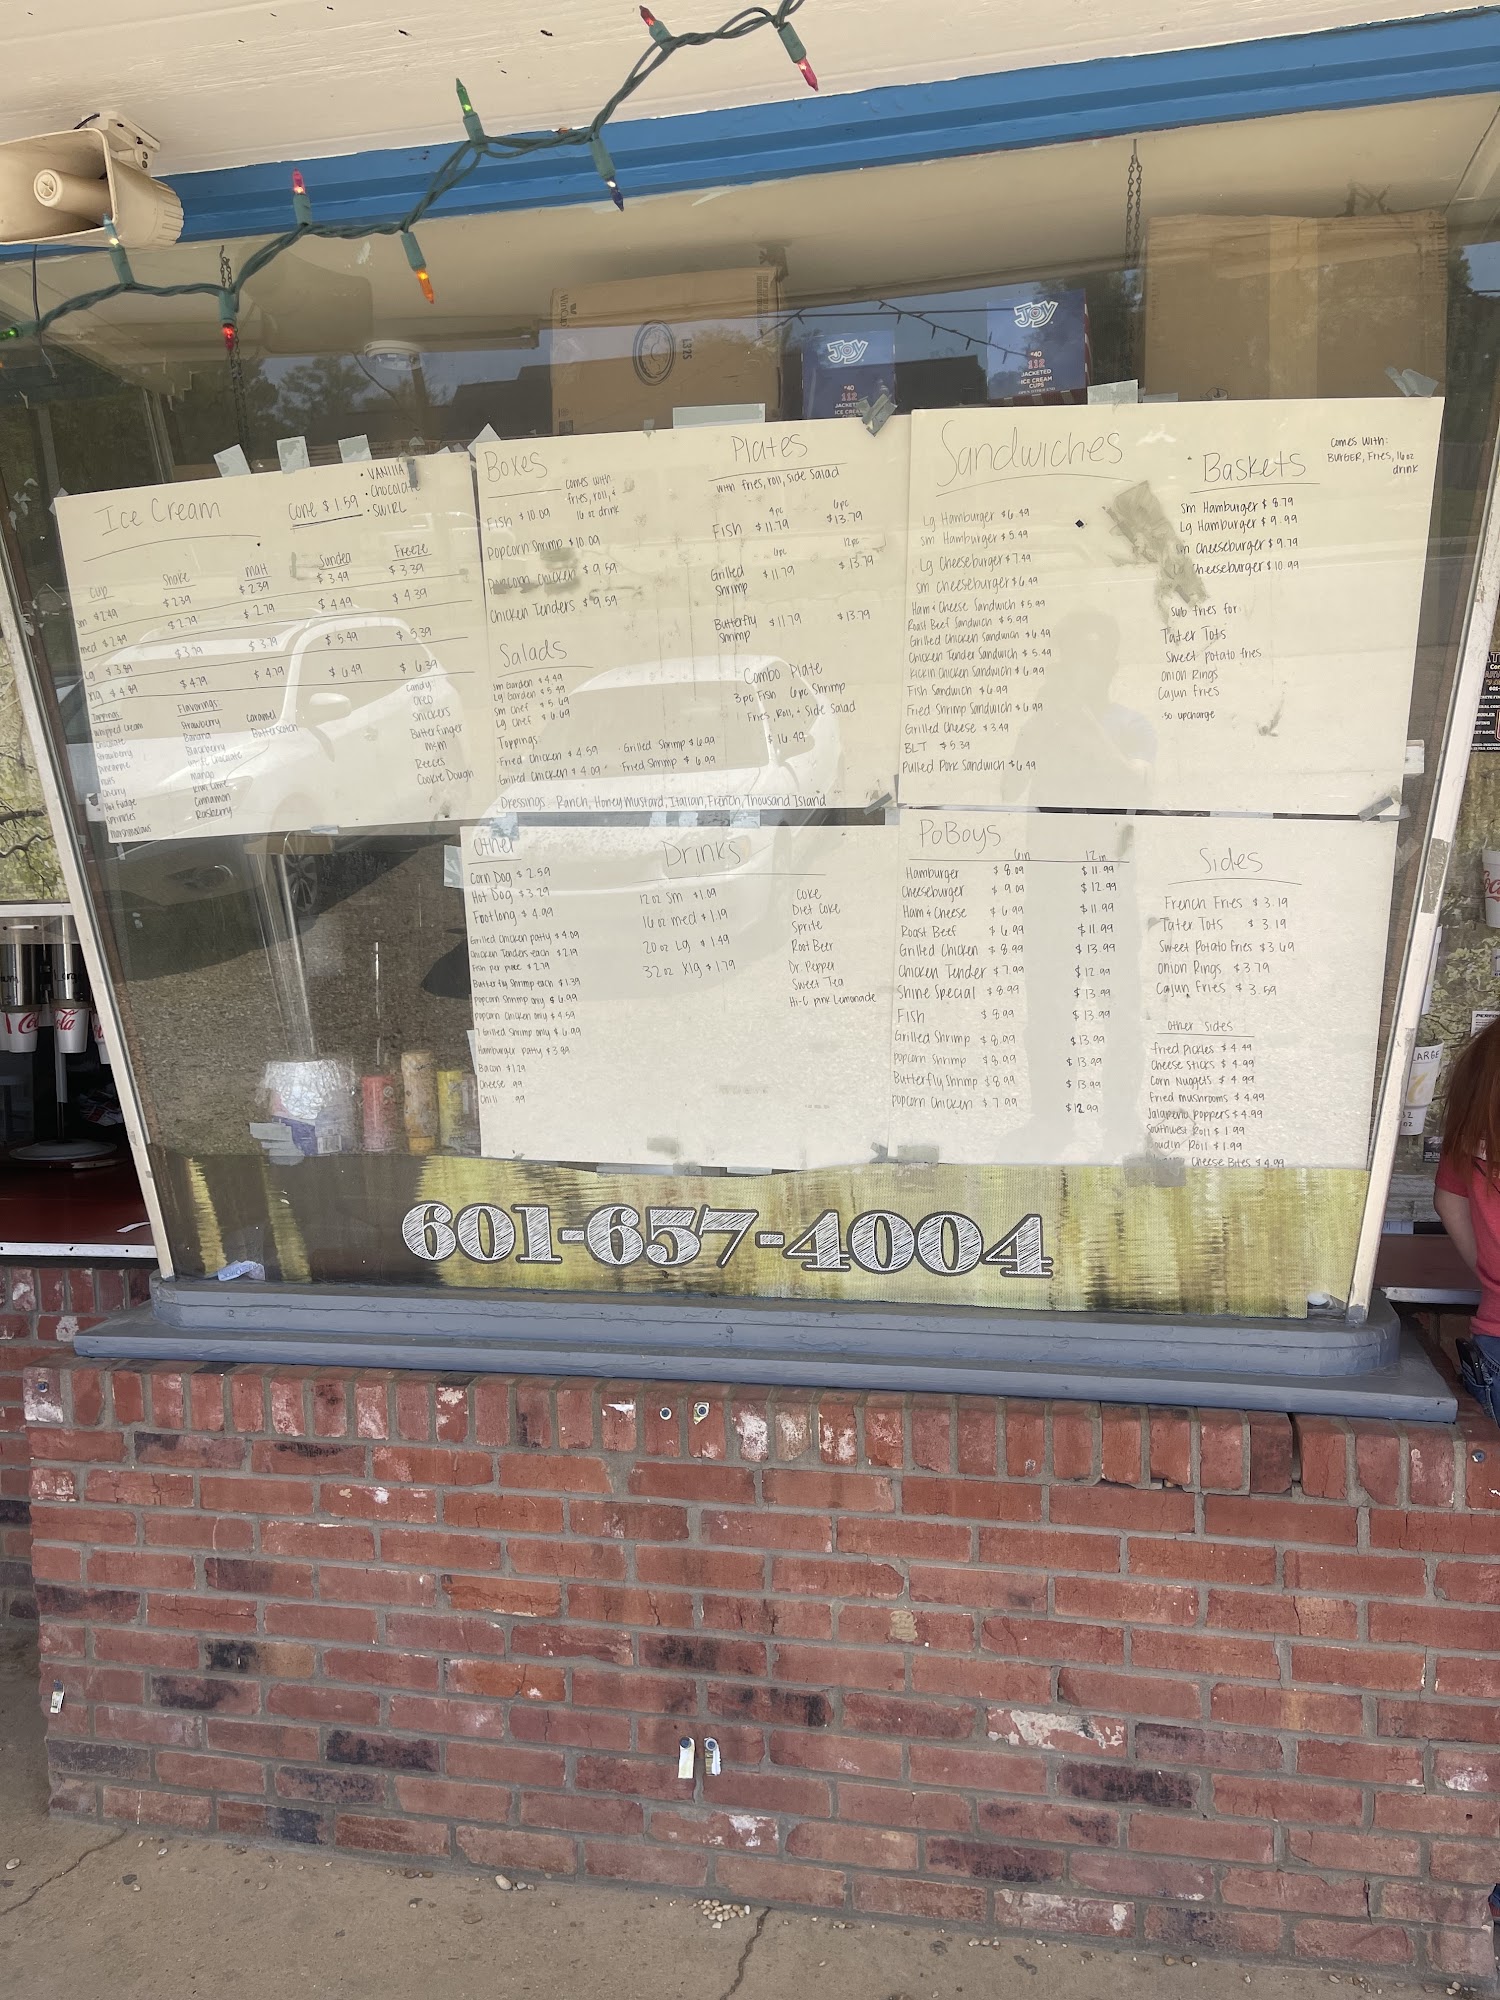 WinCup
L325
JOY
#40
112
JACKETED
ICE CREAM
JOY
#40
112
JACKETED
ICE CREAM
CUPS
Ice Cream
Cone $1.59
• VANIlla
• Chocolate
• SWIRL
Cup Shake Malt Sundea Freeze
sm $2.49 $2.39 $2.39 $3.49 $3.39
med $2.99 $2.79 $2.79 $4.49 $4.39
Lg $3.89 $3.79 $3.79 $5.49 $5.39
$4.89 $4.79 $4.79 $6.49 $6.39
Toppings
Whipped Cream
Chocolate
Strawberry
Pineapple
Nuts
Cherry
Hot Fudge
Sprinkles
Marshmallows
Flavorings
Strawberry
Banana
Blackberry
White Chocolate
Mango
Cinnamon
Rasberry
Caramel
Butterscotch
Candy
Oreo
Snickers
Butterfinger
M+M
Reeces
Cookie Dough
Boxes
Comes with
fries, roll, +
16 oz drink
Fish $10.09
Popcorn Shrimp $10.09
Popcorn Chicken $9.59
Chicken Tenders $9.59
Plates
with fries, roll, side salad
4pc 6pc
Fish $11.79 $13.79
6pc 12pc
Grilled Shrimp $11.79 $13.79
Butterfly Shrimp $11.79 $13.79
Salads
sm Garden $4.49
Lg Garden $5.49
sm Chef $5.69
Lg Chef $6.69
Toppings:
Fried Chicken $4.59 · Grilled Shrimp $6.99
Grilled Chicken $4.09 · Fried Shrimp $6.99
Dressings Ranch, Honey Mustard, Italian, French, Thousand Island
Combo Plate
3pc Fish 6pc Shrimp
Fries, Roll, + Side Salad
$16.49
Sandwiches
Lg Hamburger $6.49
sm Hamburger $5.49
Lg Cheeseburger $7.49
sm Cheeseburger $6.49
Ham + Cheese Sandwich $5.99
Roast Beef Sandwich $5.99
Grilled Chicken Sandwich $6.49
Chicken Tender Sandwich $5.49
Kickin Chicken Sandwich $6.99
Fish Sandwich $6.99
Fried Shrimp Sandwich $6.99
Grilled Cheese $3.49
BLT $5.39
Pulled Pork Sandwich $6.49
Baskets
Comes With:
BURGER, Fries, 16oz
drink
Sm Hamburger $8.79
Lg Hamburger $9.99
Sm Cheeseburger $9.79
Cheeseburger $10.99
Sub fries for
Tater Tots
Sweet potato fries
Onion Rings
Cajun fries
.50 upcharge
Other
Corn Dog $2.59
Hot Dog $3.29
Footlong $4.99
Grilled Chicken patty $4.09
Chicken Tenders each $2.19
Fish per piece $2.79
Butterfly Shrimp each $1.39
Popcorn Shrimp only $6.99
Popcorn Chicken only $4.59
7 Grilled Shrimp only $6.99
Hamburger patty $3.99
Bacon $1.29
Cheese .99
Chili .99
Drinks
12 oz Sm $1.09
16 oz med $1.19
20 oz Lg $1.49
32 oz Xlg $1.79
Coke
Diet Coke
Sprite
Root Beer
Dr. Pepper
Sweet Tea
Hi-C pink Lemonade
PoBoys
6in 12in
Hamburger $8.09 $11.99
Cheeseburger $9.09 $12.99
Ham + Cheese $6.99 $11.99
Roast Beef $6.99 $11.99
Grilled Chicken $8.99 $13.99
Chicken Tender $7.99 $12.99
Shine Special $8.99 $13.99
Fish $8.99 $13.99
Grilled Shrimp $8.99 $13.99
Popcorn Shrimp $8.99 $13.99
Butterfly Shrimp $8.99 $13.99
Popcorn Chicken $7.99 $12.99
Sides
French Fries $3.19
Tater Tots $3.19
Sweet Potato Fries $3.69
Onion Rings $3.79
Cajun Fries $3.59
Other Sides
Fried Pickles $4.49
Cheese Sticks $4.99
Corn Nuggets $4.99
Fried Mushrooms $4.99
Jalapeño Poppers $4.99
Southwest Roll $1.99
Boudin Roll $1.99
Cheese Bites $4.99
LARGE
601-657-4004